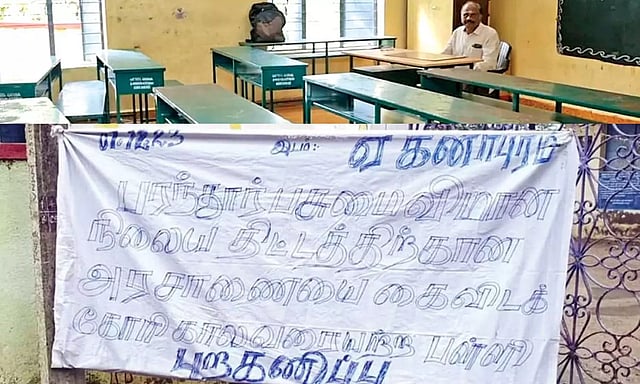 01.12.23 இடம்: ஏகனாபுரம்
பரந்தூர் பசுமை விமான
நிலைய திட்டத்திற்கான
அரசாணையை கைவிடக்
கோரி காலவரையற்ற பள்ளி
புறகணிப்பு